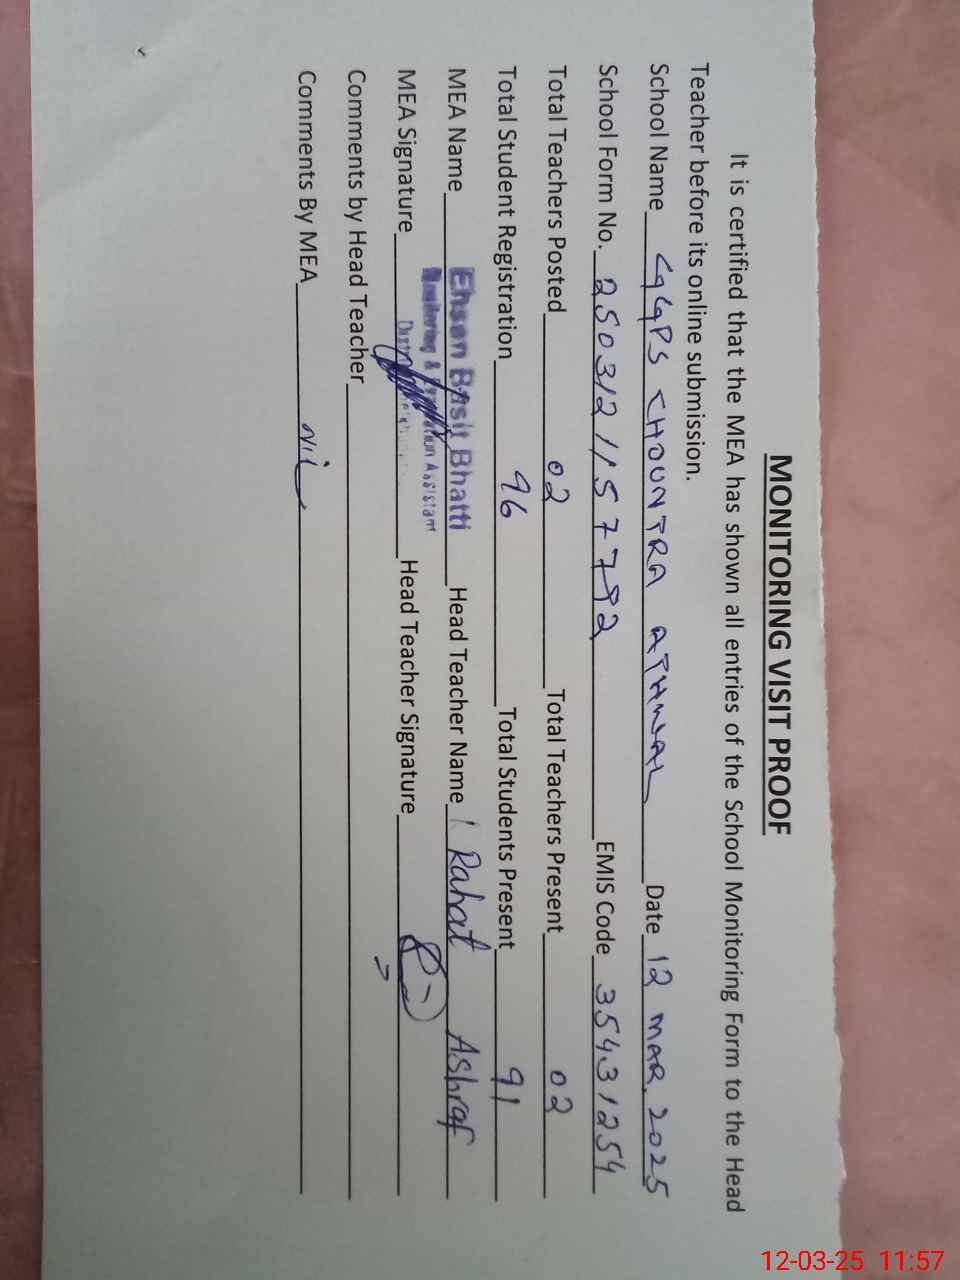 MONITORING VISIT PROOF
It is certified that the MEA has shown all entries of the School Monitoring Form to the Head
Teacher before its online submission.
School Name GGPS CHOUNTRA ATHWAL Date 12 MAR. 2025
School Form No. 250312115792 EMIS Code 35431254
Total Teachers Posted 02 Total Teachers Present 02
Total Student Registration 96 Total Students Present 91
MEA Name Ehsan Basit Bhatti Head Teacher Name Rahat Ashraf
Monitoring & Evaluation Assistant
MEA Signature Head Teacher Signature
Comments by Head Teacher
Comments By MEA Nil
12-03-25 11:57